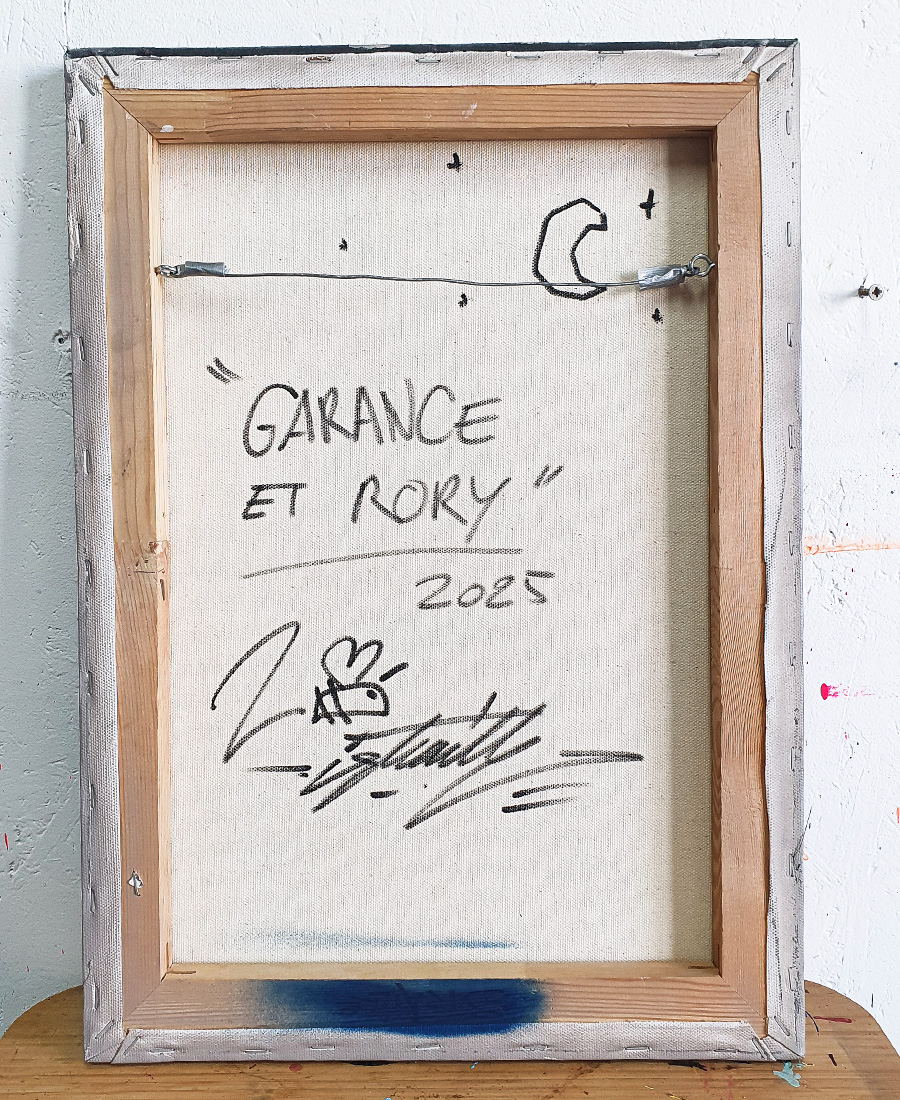 "GARANCE
ET RORY"
2025